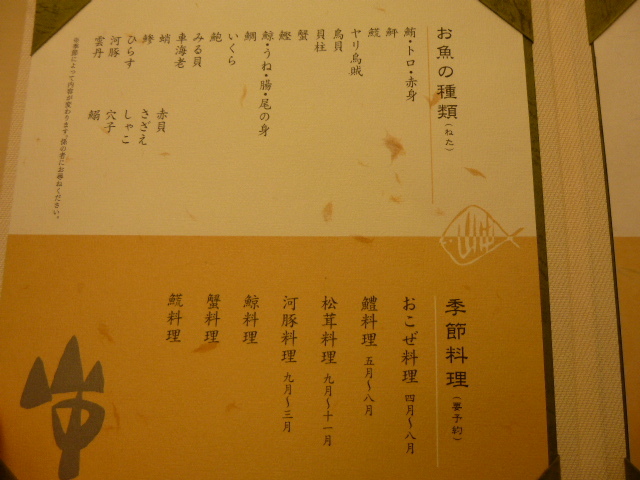 お魚の種類(ねた)
鮪・トロ・赤身
鮃
鯱
ヤリ烏賊
鳥貝
貝柱
蟹
鰹
鯨・うね・腸・尾の身
鯛
いくら
鮑
みる貝
車海老
蛸 赤貝
鯵 さざえ
ひらす しゃこ
河豚 穴子
雲丹 鰯
※季節によって内容が変わります。係の者にお尋ねください。
季節料理(要予約)
おこぜ料理 四月〜八月
鱧料理 五月〜八月
松茸料理 九月〜十一月
河豚料理 九月〜三月
鯨料理
蟹料理